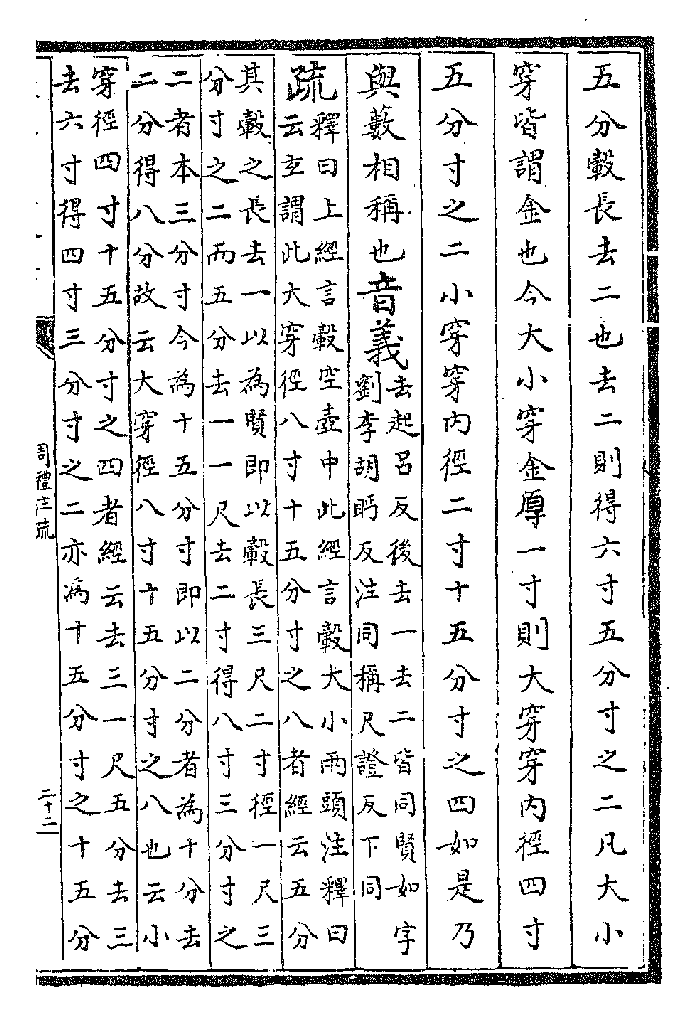 五分轂長去二也去二則得六寸五分寸之二凡大小
穿皆謂金也今大小穿金厚一寸則大穿穿內徑四寸
五分寸之二小穿穿內徑二寸十五分寸之四如是乃
與藪相稱也音義去起呂反後去一去二皆同賢如字
劉李胡眄反注同稱尺證反下同
疏釋曰上經言轂空壺中此經言轂大小兩頭注釋曰
云玄謂此大穿徑八寸十五分寸之八者經云五分
其轂之長去一以為賢即以轂長三尺二寸徑一尺三
分寸之二而五分去一一尺去二寸得八寸三分寸之
二者本三分寸今為十五分寸即以二分者為十分去
二分得八分故云大穿徑八寸十五分寸之八也云小
穿徑四寸十五分寸之四者經云去三一尺五分去三
去六寸得四寸三分寸之二亦為十五分寸之十五分
周禮注疏
二十二